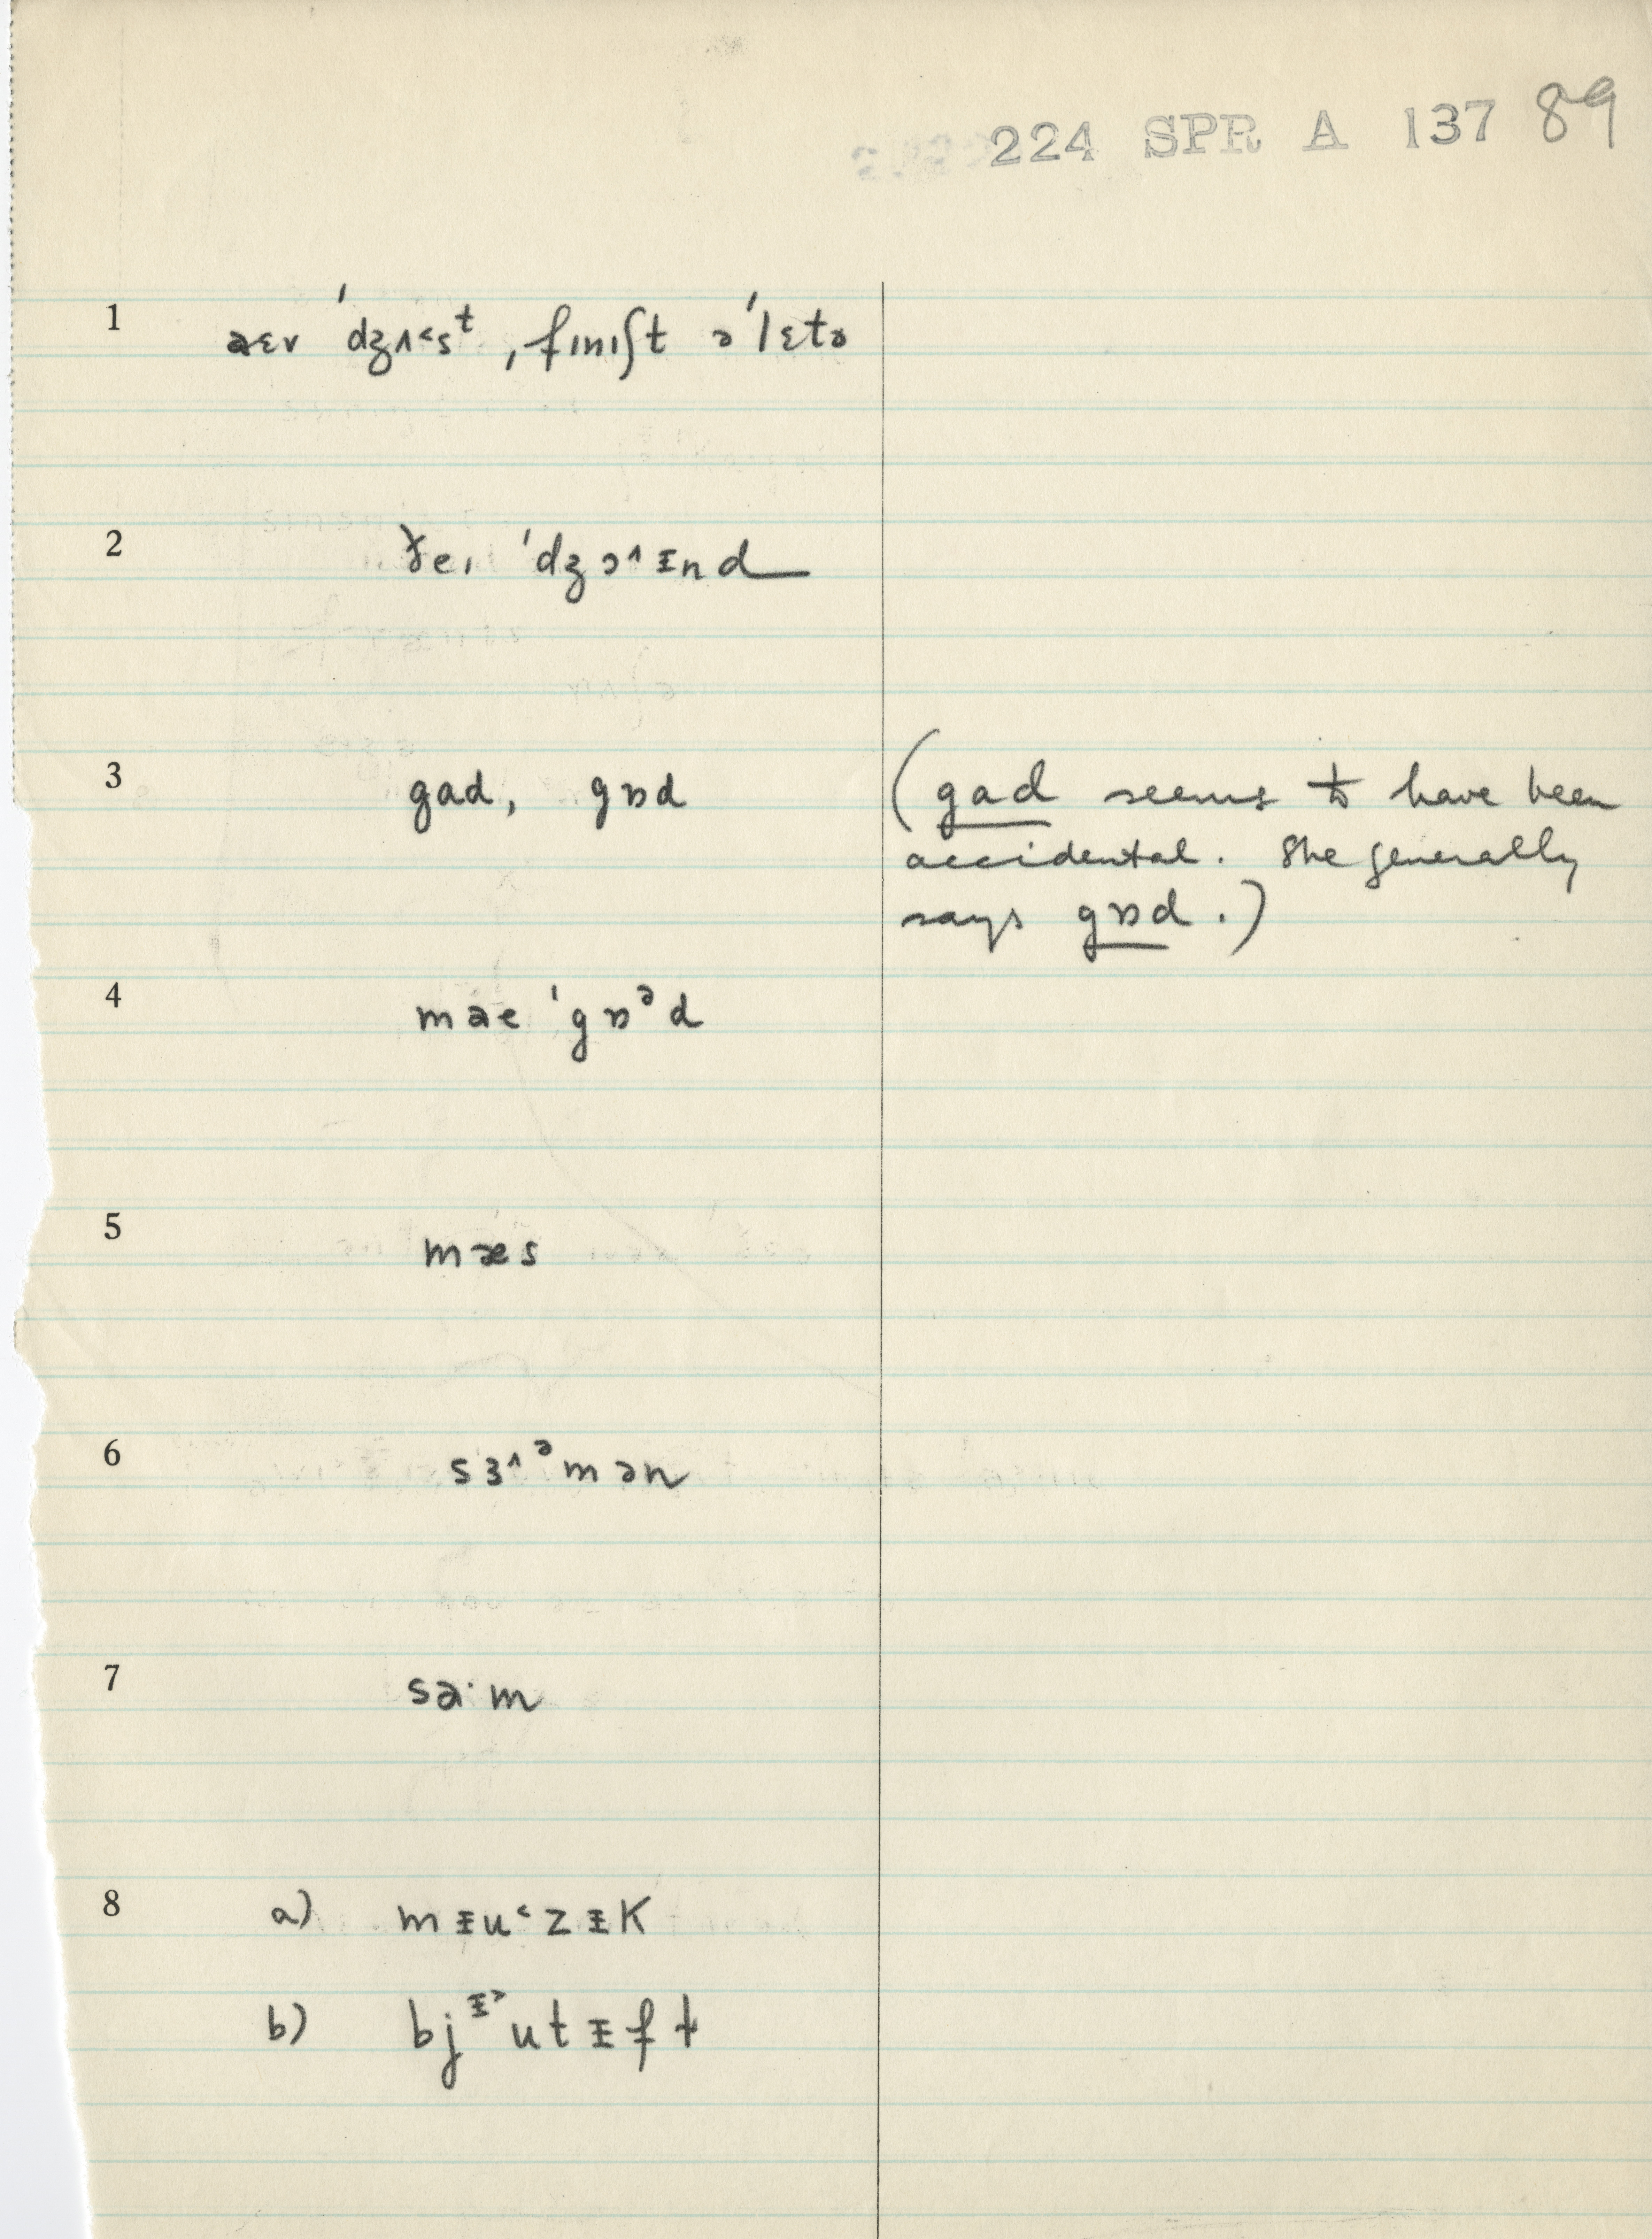 224 SPR A 137 89
1 aɛv 'dʒʌ˂sᵗ ˌfɪnɪʃt ə'lɛtə
2 ðeɪ 'dʒɔ˄ᵻnd
3 gad, gɒd (gad seems to have been
accidental. She generally
says gɒd.)
4 mae 'gɒᵊd
5 mæs
6 sɜ˄ᵊmən
7 sa·m
8 a) mᵻu˂zᵻk
b) bjᵻ˃utᵻfɫ